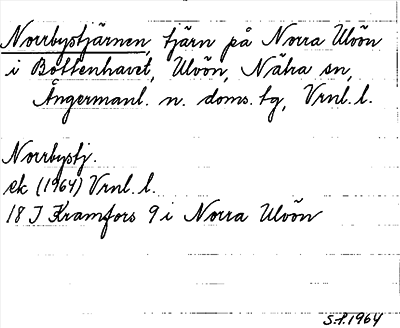 Norrbystjärnen, tjärn på Norra Ulvön
i Bottenhavet, Ulvön, Nätra sn,
Ångermanl. n. doms. tg, Vrnl. l.
Norrbystj.
ek (1964) Vrnl. l.
18 J Kramfors 9 i Norra Ulvön
S.f. 1964